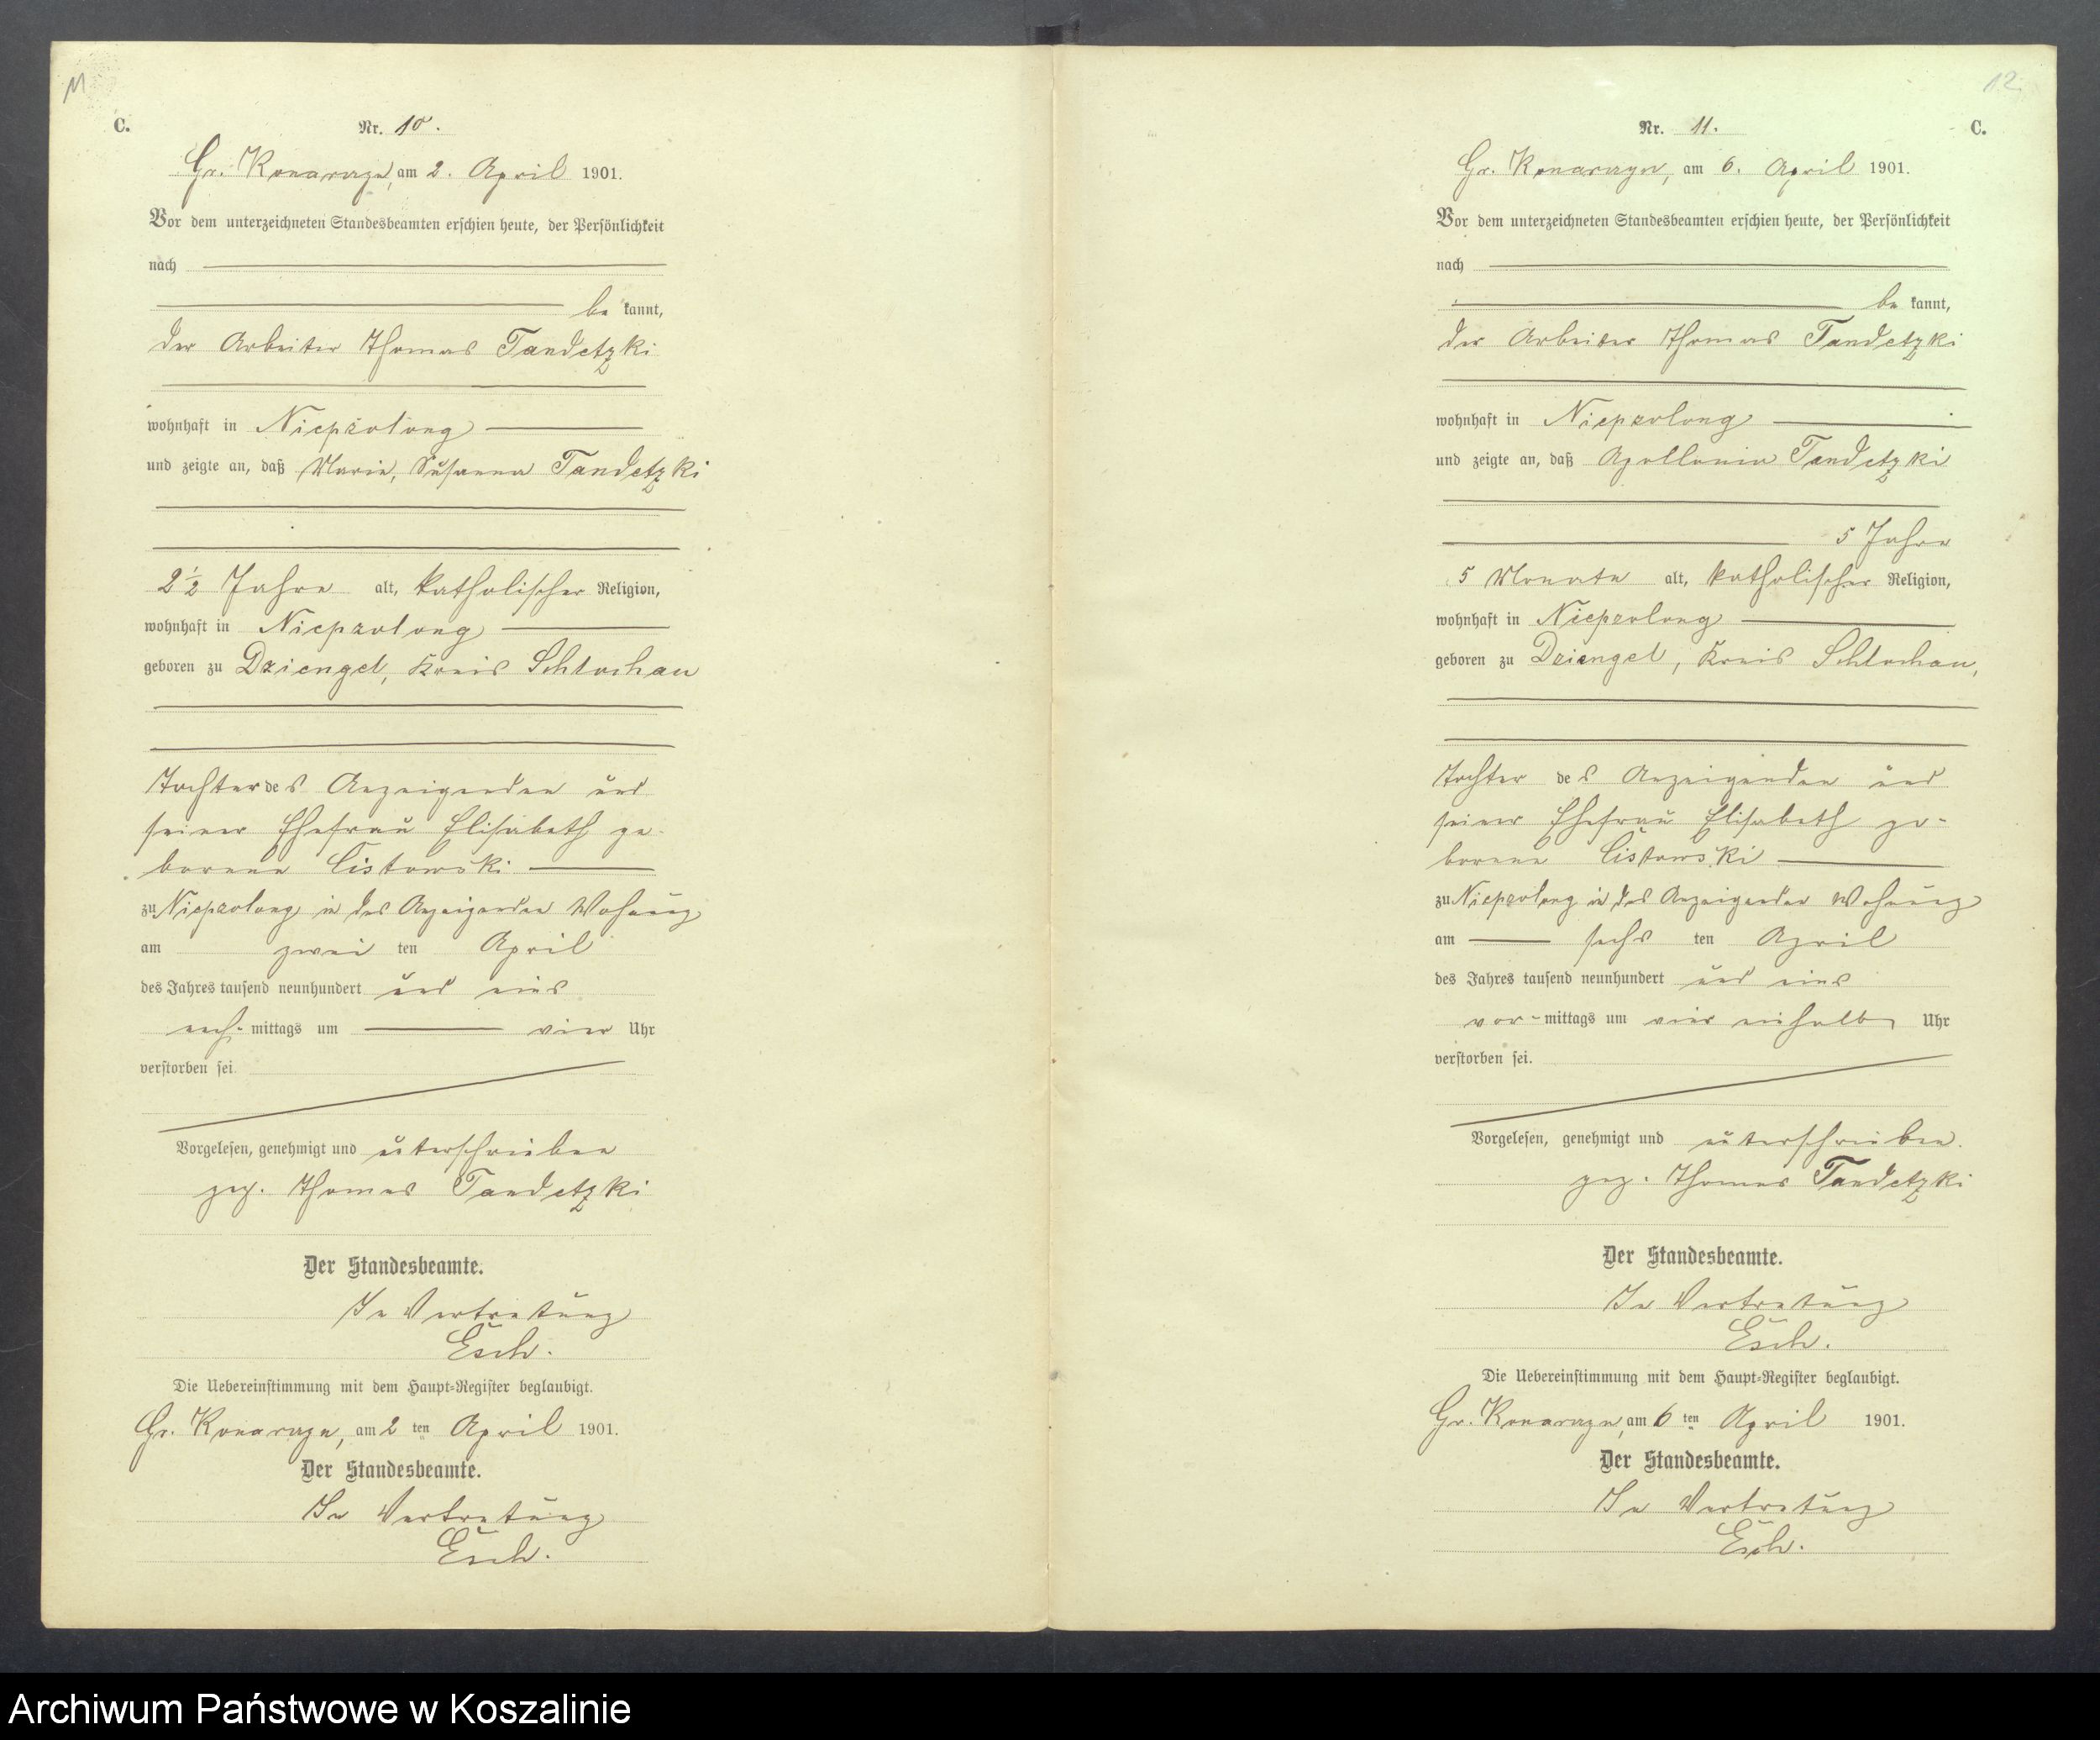 11
C.
Nr. 10.
Gr. Konarczyn, am 2. April 1901.
Vor dem unterzeichneten Standesbeamten erschien heute, der Persönlichkeit
nach
be kannt,
der Arbeiter Thomas Tandetzki
wohnhaft in Niepszolong
und zeigte an, daß Maria, Susanna Tandetzki
2 1/2 Jahre alt, katholischer Religion,
wohnhaft in Niepszolong
geboren zu Dziengel, Kreis Schlochau
Tochter des Anzeigenden und
seiner Ehefrau Elisabeth ge-
borene Cistowski
zu Niepszolong in des Anzeigenden Wohnung
am zwei ten April
des Jahres tausend neunhundert und eins
nach- mittags um vier Uhr
verstorben sei.
Vorgelesen, genehmigt und unterschrieben
gez. Thomas Tandetzki
Der Standesbeamte.
In Vertretung
Esch.
Die Uebereinstimmung mit dem Haupt-Register beglaubigt.
Gr. Konarczyn, am 2 ten April 1901.
Der Standesbeamte.
In Vertretung
Esch.
12.
Nr. 11.
C.
Gr. Konarczyn, am 6. April 1901.
Vor dem unterzeichneten Standesbeamten erschien heute, der Persönlichkeit
nach
be kannt,
der Arbeiter Thomas Tandetzki
wohnhaft in Niepszolong
und zeigte an, daß Apollonia Tandetzki
5 Jahre
5 Monate alt, katholischer Religion,
wohnhaft in Niepszolong
geboren zu Dziengel, Kreis Schlochau,
Tochter des Anzeigenden und
seiner Ehefrau Elisabeth ge-
borene Cistowski
zu Niepszolong in des Anzeigenden Wohnung
am sechs ten April
des Jahres tausend neunhundert und eins
vor- mittags um vier einhalb Uhr
verstorben sei.
Vorgelesen, genehmigt und unterschrieben.
gez. Thomas Tandetzki
Der Standesbeamte.
In Vertretung
Esch.
Die Uebereinstimmung mit dem Haupt-Register beglaubigt.
Gr. Konarczyn, am 6 ten April 1901.
Der Standesbeamte.
In Vertretung
Esch.
Archiwum Państwowe w Koszalinie